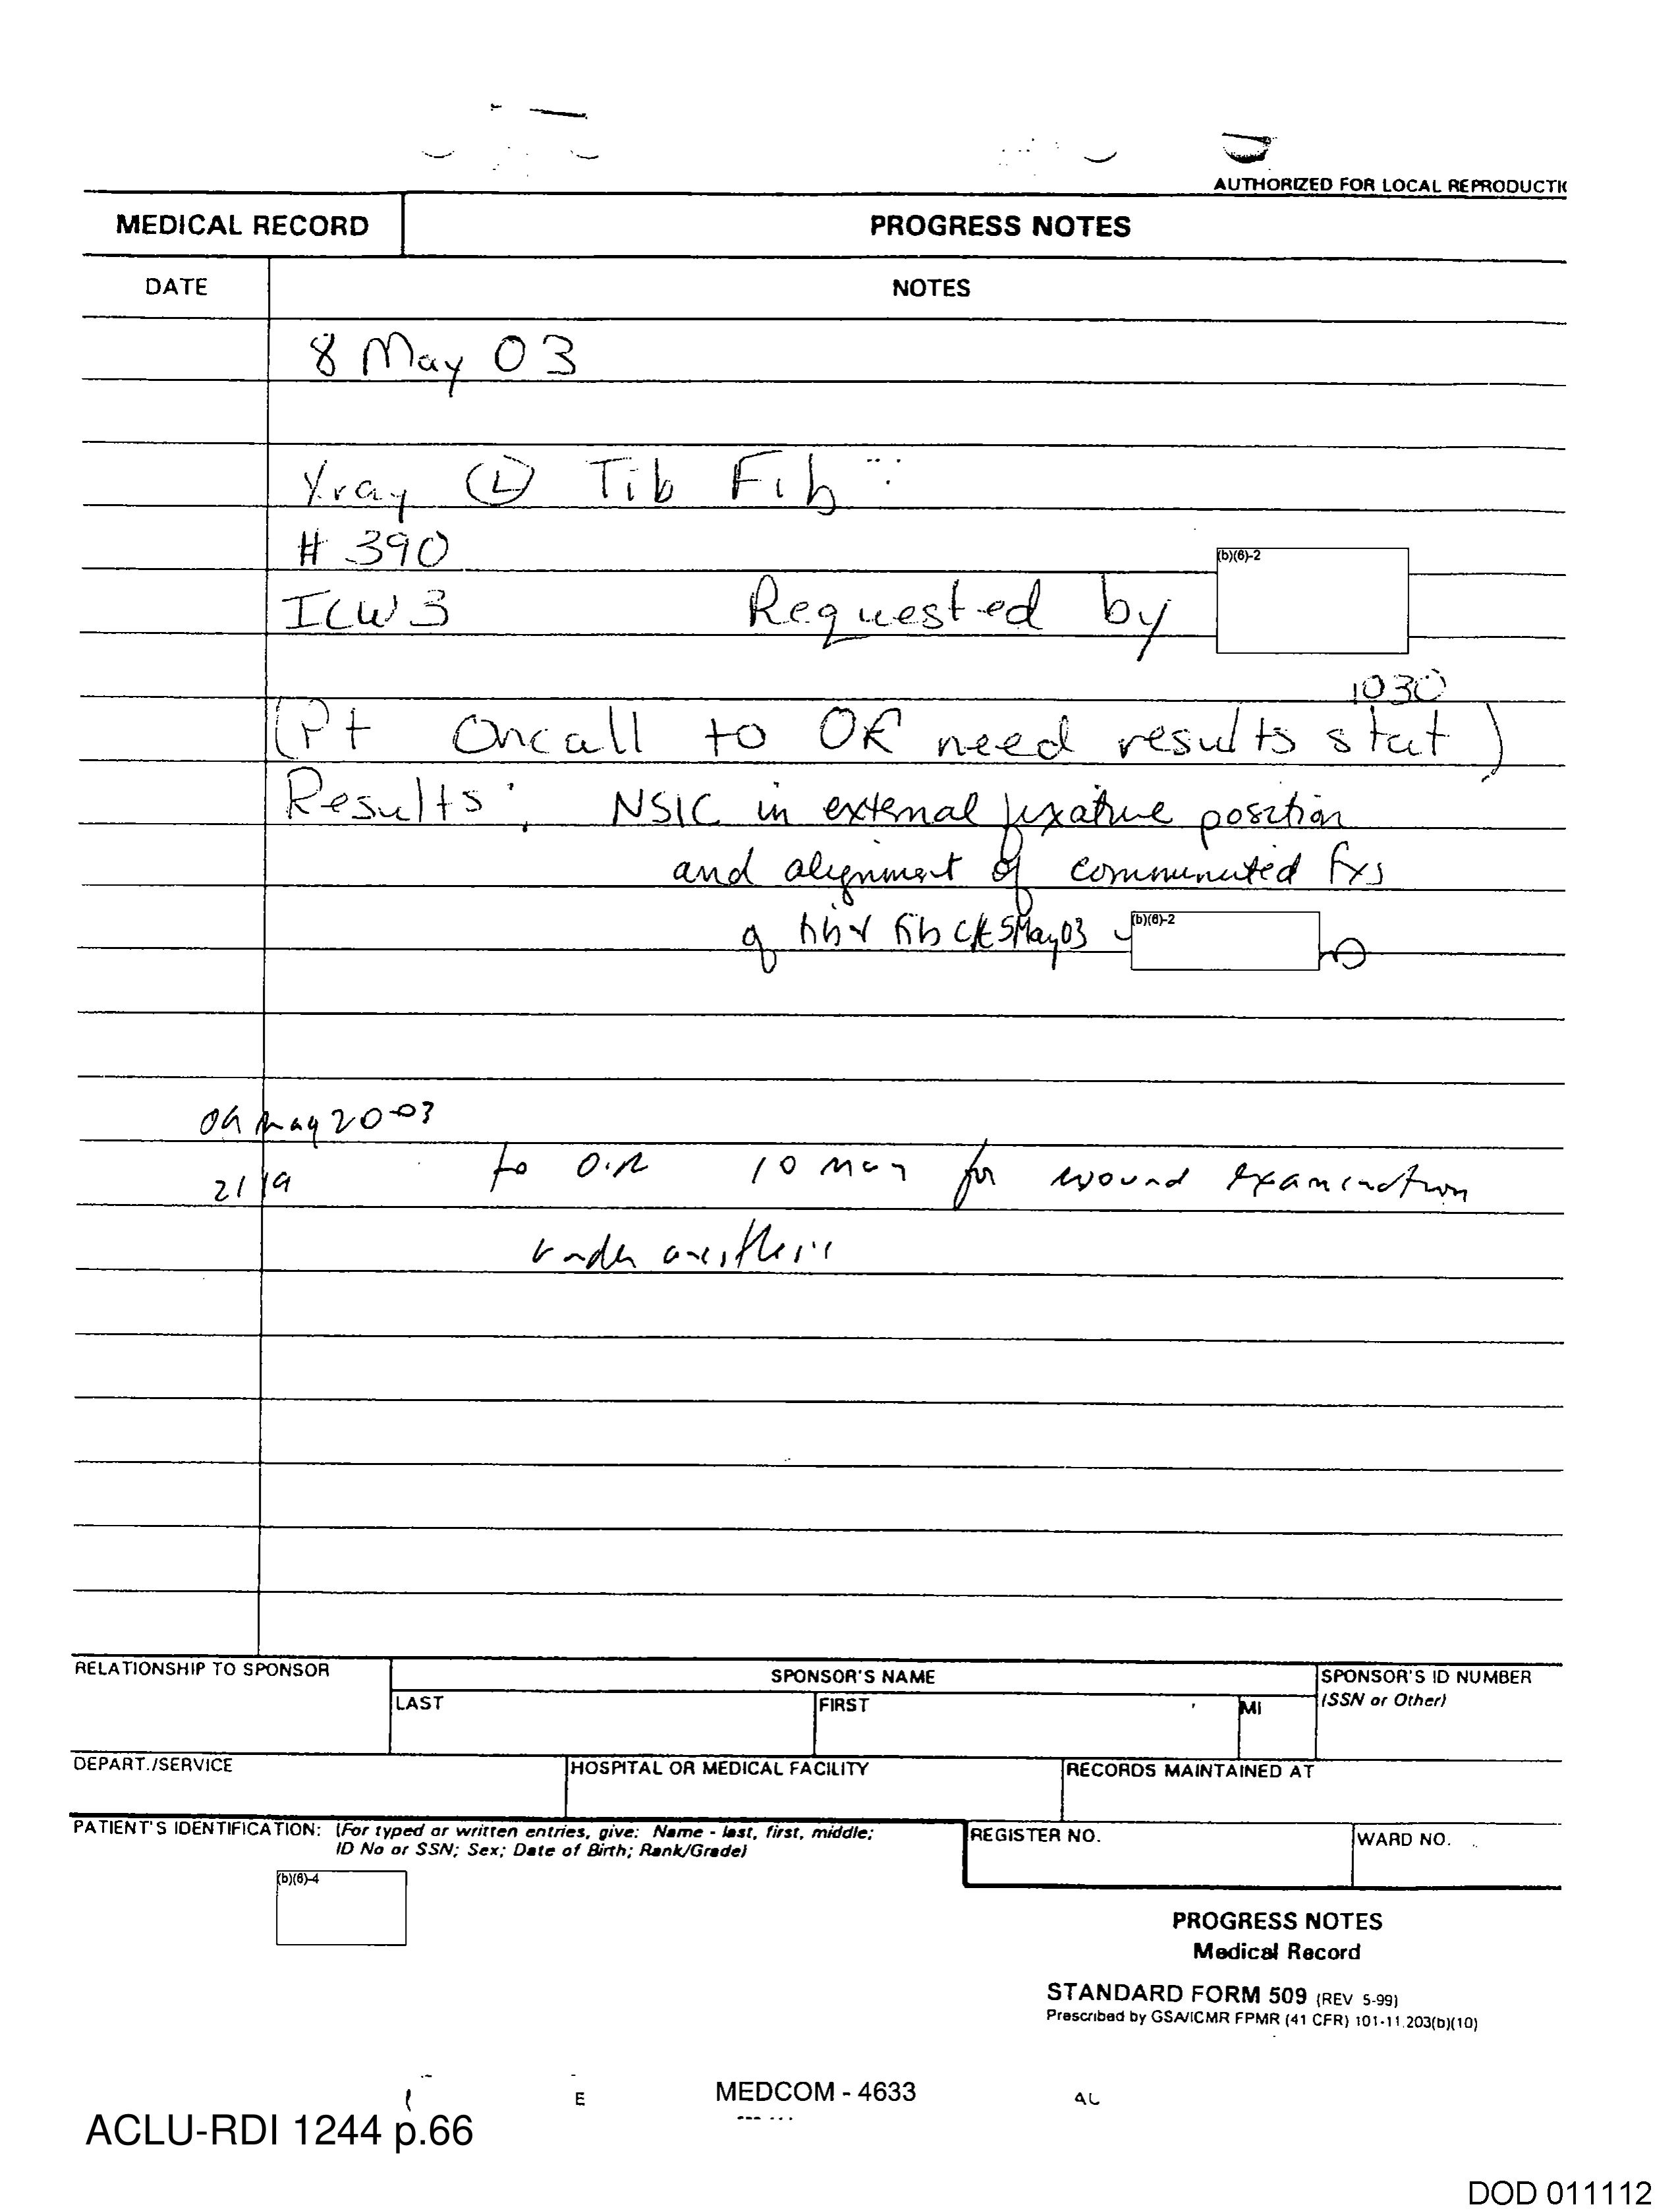 AUTHORIZED FOR LOCAL REPRODUCTI
MEDICAL RECORD
PROGRESS NOTES
DATE
NOTES
8 May 03
Xray Ⓛ Tib Fib
# 390
(b)(6)-2
ICW3 Requested by
1030
(Pt Oncall to OR need results stat)
Results: NSIC in external fixative position
and alignment of comminuted fxs
of tib & fib 5May03
(b)(6)-2
09 May 2003
2119 to O.R 10 May for wound examination
under anesthesia
RELATIONSHIP TO SPONSOR
SPONSOR'S NAME
LAST
FIRST
MI
SPONSOR'S ID NUMBER
(SSN or Other)
DEPART./SERVICE
HOSPITAL OR MEDICAL FACILITY
RECORDS MAINTAINED AT
PATIENT'S IDENTIFICATION: (For typed or written entries, give: Name - last, first, middle;
ID No or SSN; Sex; Date of Birth; Rank/Grade)
REGISTER NO.
WARD NO.
(b)(6)-4
PROGRESS NOTES
Medical Record
STANDARD FORM 509 (REV 5-99)
Prescribed by GSA/ICMR FPMR (41 CFR) 101-11.203(b)(10)
MEDCOM - 4633
ACLU-RDI 1244 p.66
DOD 011112